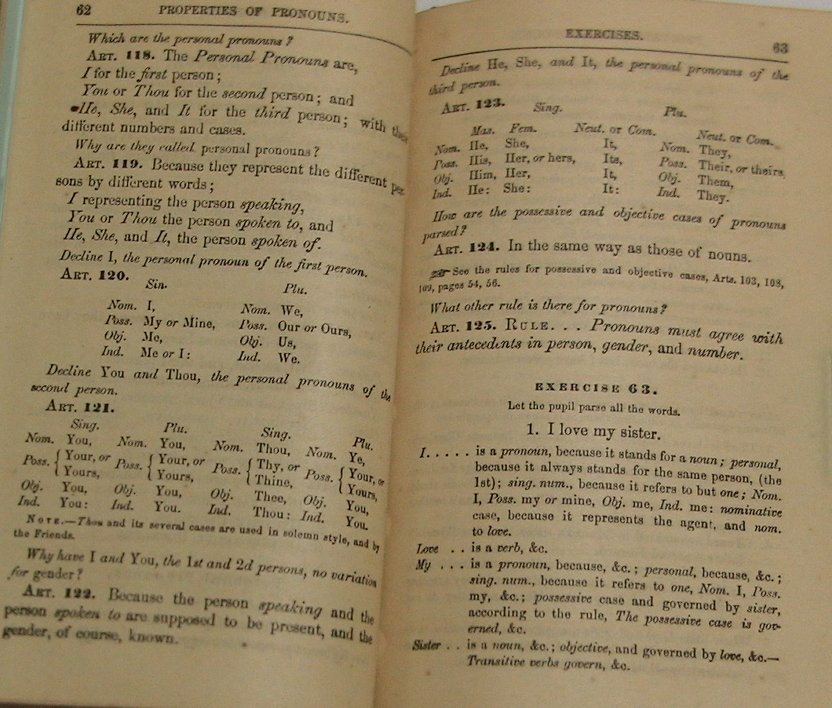 62 PROPERTIES OF PRONOUNS.
Which are the personal pronouns?
ART. 118. The Personal Pronouns are,
I for the first person;
You or Thou for the second person; and
He, She, and It for the third person; with
different numbers and cases.
Why are they called personal pronouns?
ART. 119. Because they represent the different per
sons by different words;
I representing the person speaking,
You or Thou the person spoken to, and
He, She, and It, the person spoken of.
Decline I, the personal pronoun of the first person.
ART. 120.
Sin. Plu.
Nom. I, Nom. We,
Poss. My or Mine, Poss. Our or Ours,
Obj. Me, Obj. Us,
Ind. Me or I: Ind. We.
Decline You and Thou, the personal pronouns of the
second person.
ART. 121.
Sing. Plu. Sing. Plu.
Nom. You, Nom. You, Nom. Thou, Nom. Ye,
Poss. { Your, or Poss. { Your, or Poss. { Thy, or Poss. { Your, or
Yours, Yours, Thine, Yours,
Obj. You, Obj. You, Obj. Thee, Obj. You,
Ind. You: Ind. You. Ind. Thou: Ind. You.
NOTE.—Thou and its several cases are used in solemn style, and by
the Friends.
Why have I and You, the 1st and 2d persons, no variation
for gender?
ART. 122. Because the person speaking and the
person spoken to are supposed to be present, and the
gender, of course, known.
EXERCISES. 63
Decline He, She, and It, the personal pronouns of the
third person.
ART. 123. Sing. Plu.
Mas. Fem. Neut. or Com. Neut. or Com.
Nom. He, She, It, Nom. They,
Poss. His, Her, or hers, Its, Poss. Their, or theirs,
Obj. Him, Her, It, Obj. Them,
Ind. He: She: It: Ind. They.
How are the possessive and objective cases of pronouns
parsed?
ART. 124. In the same way as those of nouns.
☞ See the rules for possessive and objective cases, Arts. 103, 108,
109, pages 54, 56.
What other rule is there for pronouns?
ART. 125. RULE. . . Pronouns must agree with
their antecedents in person, gender, and number.
EXERCISE 63.
Let the pupil parse all the words.
1. I love my sister.
I. . . . . is a pronoun, because it stands for a noun; personal,
because it always stands for the same person, (the
1st); sing. num., because it refers to but one; Nom.
I, Poss. my or mine, Obj. me, Ind. me: nominative
case, because it represents the agent, and nom.
to love.
Love . . is a verb, &c.
My . . . is a pronoun, because, &c.; personal, because, &c.;
sing. num., because it refers to one, Nom. I, Poss.
my, &c.; possessive case and governed by sister,
according to the rule, The possessive case is gov-
erned, &c.
Sister . . is a noun, &c.; objective, and governed by love, &c.—
Transitive verbs govern, &c.